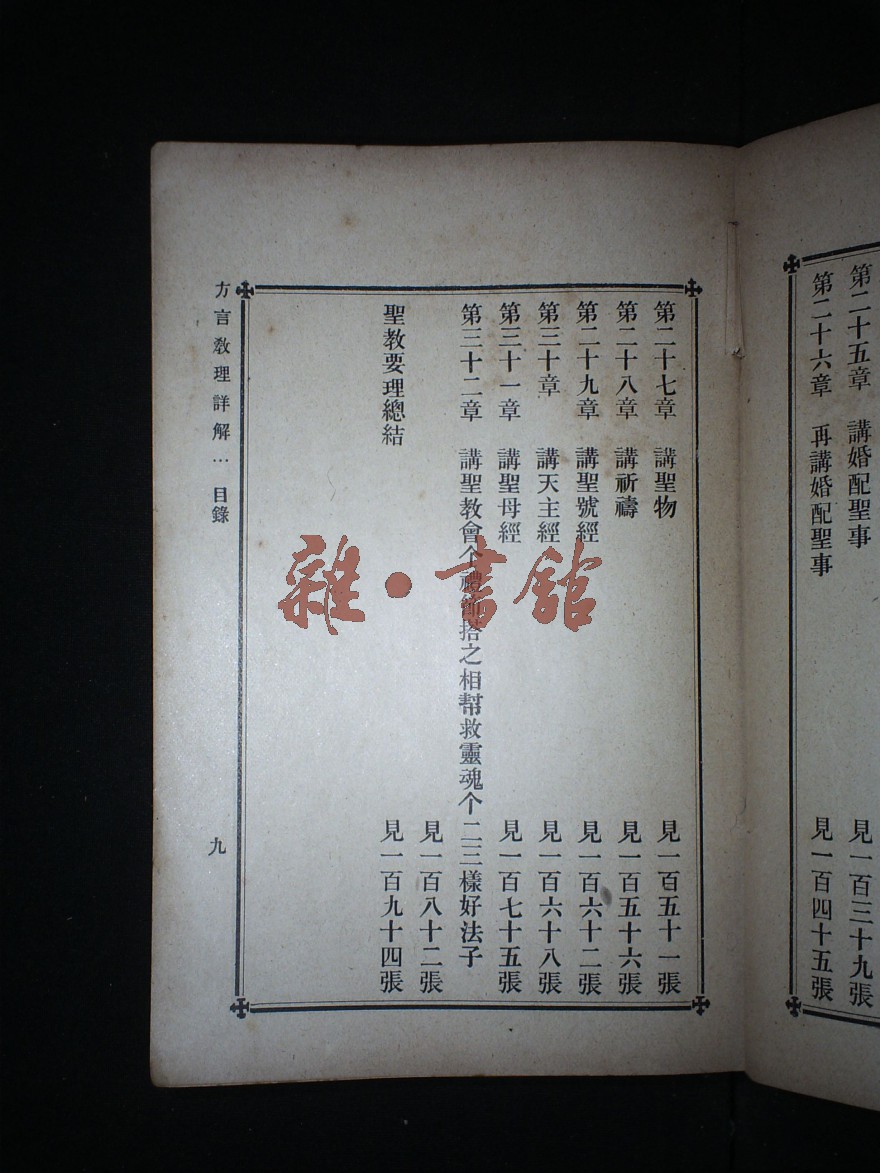 第二十五章　講婚配聖事　見一百三十九張
第二十六章　再講婚配聖事　見一百四十五張
第二十七章　講聖物　見一百五十一張
第二十八章　講祈禱　見一百五十六張
第二十九章　講聖號經　見一百六十二張
第三十章　講天主經　見一百六十八張
第三十一章　講聖母經　見一百七十五張
第三十二章　講聖教會个禮節搭之相幫救靈魂个二三樣好法子
見一百八十二張
聖教要理總結　見一百九十四張
方言教理詳解…目錄　九
雜·書館